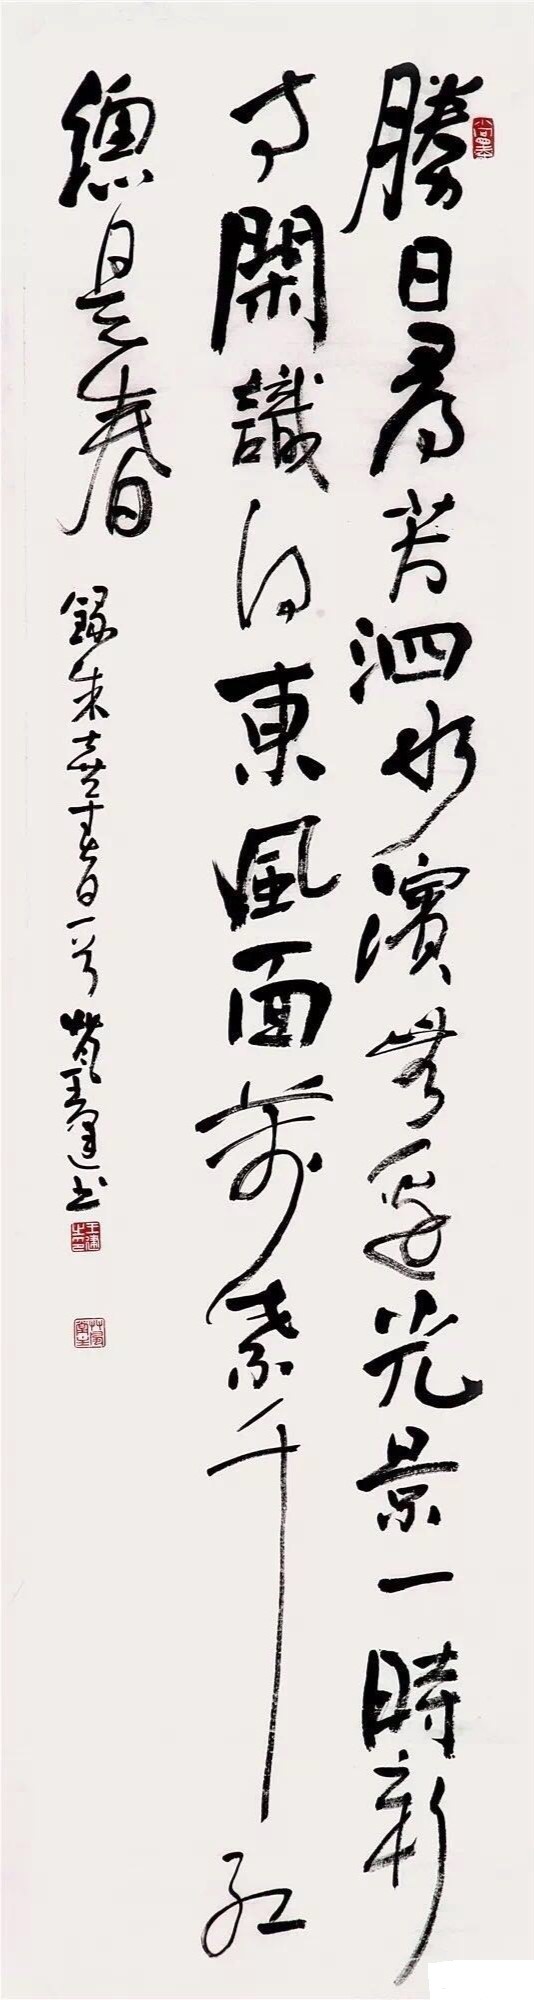 勝日尋芳泗水濱無邊光景一時新
等閑識得東風面萬紫千紅
總是春
錄朱熹春日一首 王建書